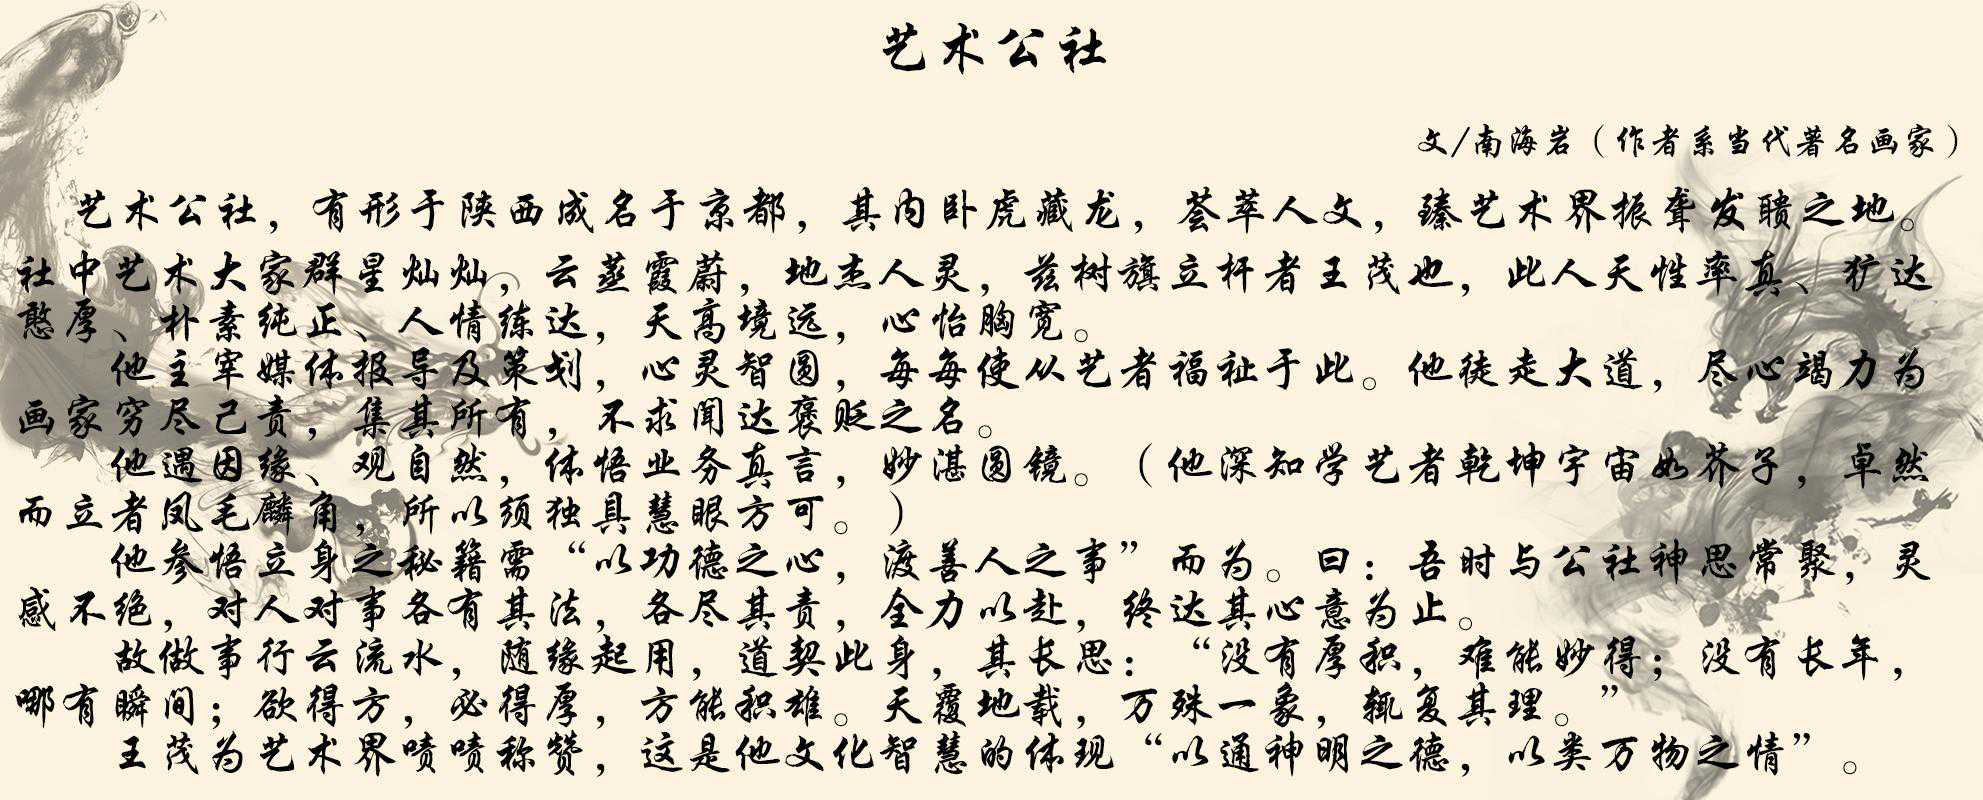 艺术公社
文/南海岩（作者系当代著名画家）
艺术公社，有形于陕西成名于京都，其内卧虎藏龙，荟萃人文，臻艺术界振聋发聩之地。
社中艺术大家群星灿灿，云蒸霞蔚，地杰人灵，兹树旗立杆者王茂也，此人天性率真、犷达
憨厚、朴素纯正、人情练达，天高境远，心怡胸宽。
他主宰媒体报导及策划，心灵智圆，每每使从艺者福祉于此。他徒走大道，尽心竭力为
画家穷尽己责，集其所有，不求闻达褒贬之名。
他遇因缘、观自然，体悟业务真言，妙湛圆镜。（他深知学艺者乾坤宇宙如芥子，卓然
而立者凤毛麟角，所以须独具慧眼方可。）
他参悟立身之秘籍需“以功德之心，渡善人之事”而为。曰：吾时与公社神思常聚，灵
感不绝，对人对事各有其法，各尽其责，全力以赴，终达其心意为止。
故做事行云流水，随缘起用，道契此身，其长思：“没有厚积，难能妙得；没有长年，
哪有瞬间；欲得方，必得厚，方能积雄。天覆地载，万殊一象，辄复其理。”
王茂为艺术界啧啧称赞，这是他文化智慧的体现“以通神明之德，以类万物之情”。